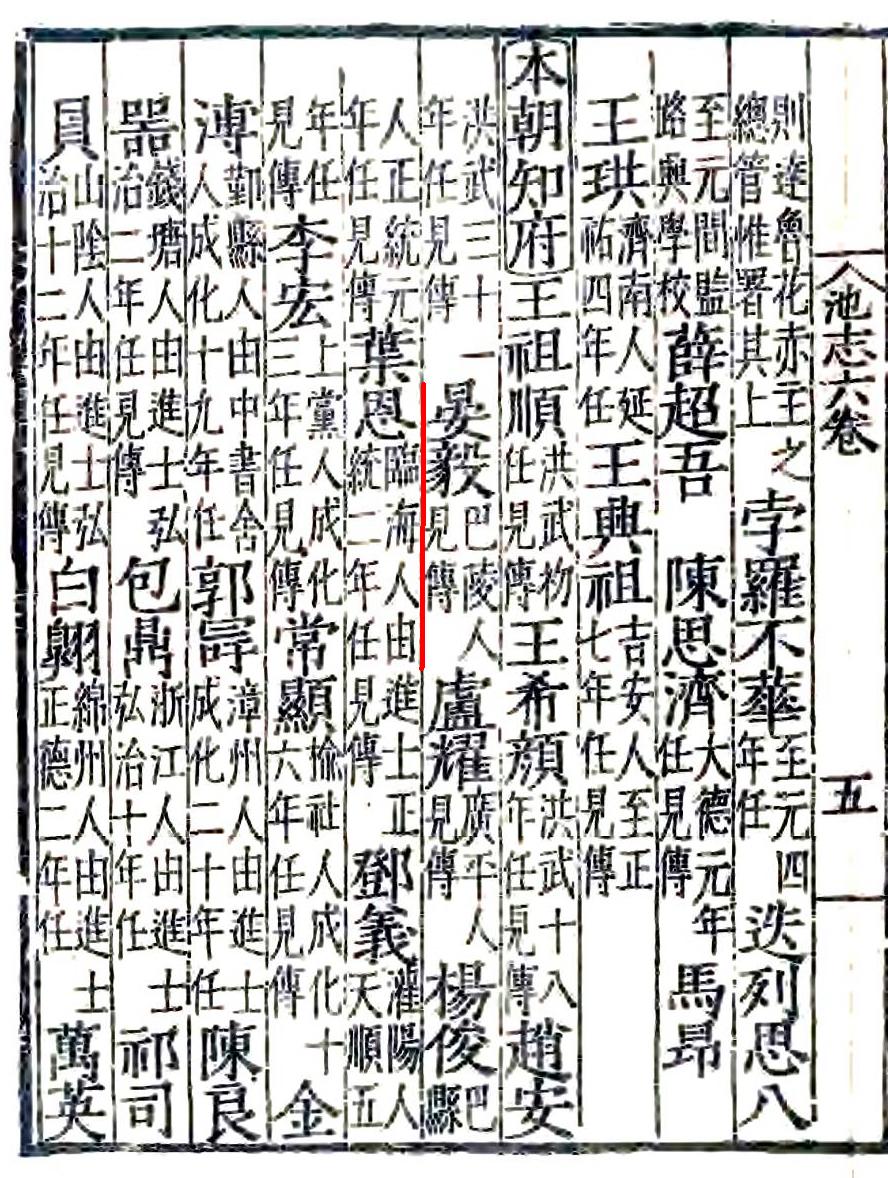 池志六卷 五
則達魯花赤主之總管惟署其上孛羅不華至元四年任迭列思八
至元間監路興學校薛超吾 陳思濟大德元年任見傳馬昂
王珙濟南人延祐四年任王興祖吉安人至正七年任見傳
本朝知府王祖順洪武初任見傳王希顏洪武十八年任見傳趙安
洪武三十一年任見傳晏毅巴陵人見傳盧耀廣平人見傳楊俊巴縣
人正統元年任見傳葉恩臨海人由進士正統二年任見傳鄧義灌陽人天順五
年任見傳李宏上黨人成化三年任見傳常顯榆社人成化十六年任見傳金
溥鄞縣人由中書舍人成化十九年任郭漳州人由進士成化二十年任陳良
器錢塘人由進士弘治二年任見傳包鼎浙江人由進士弘治十年任祁司
員山陰人由進士弘治十二年任見傳白翺綿州人由進士正德二年任萬英